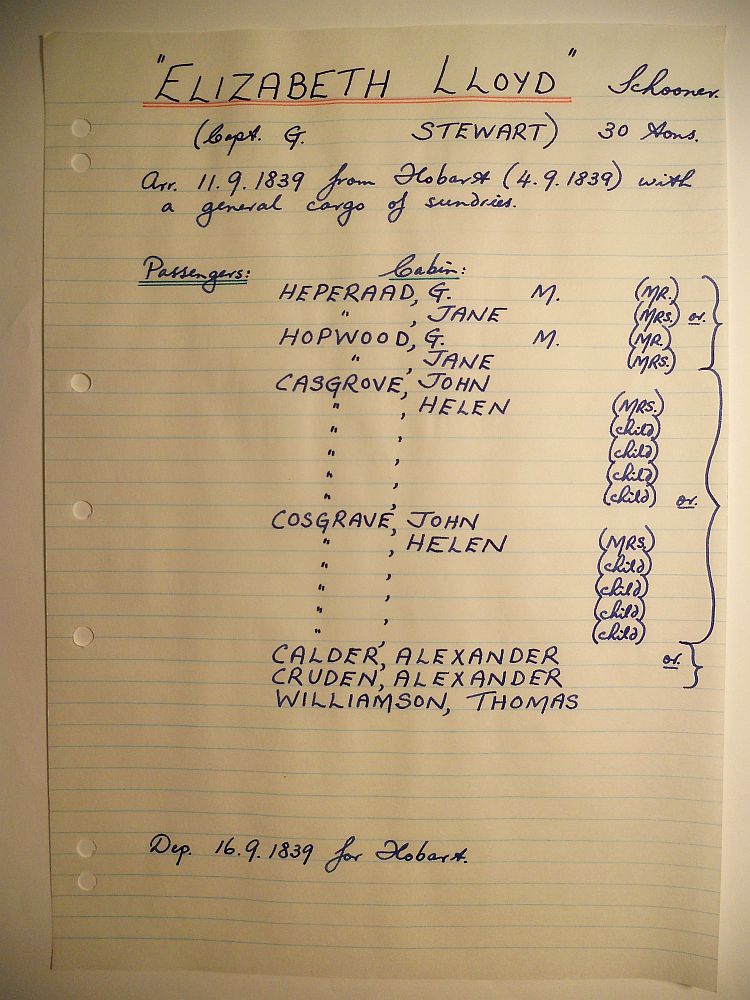 "ELIZABETH LLOYD" Schooner.
(Capt. G. STEWART) 30 tons.
Arr. 11.9.1839 from Hobart (4.9.1839) with
a general cargo of sundries.
Passengers: Cabin:
HEPERAAD, G. M. (MR.)
" , JANE (MRS.) or.
HOPWOOD, G. M. (MR.)
" , JANE (MRS.)
CASGROVE, JOHN
" , HELEN (MRS.)
" , (child)
" , (child)
" , (child)
" , (child) or.
COSGRAVE, JOHN
" , HELEN (MRS.)
" , (child)
" , (child)
" , (child)
" , (child)
CALDER, ALEXANDER or.
CRUDEN, ALEXANDER
WILLIAMSON, THOMAS
Dep. 16.9.1839 for Hobart.